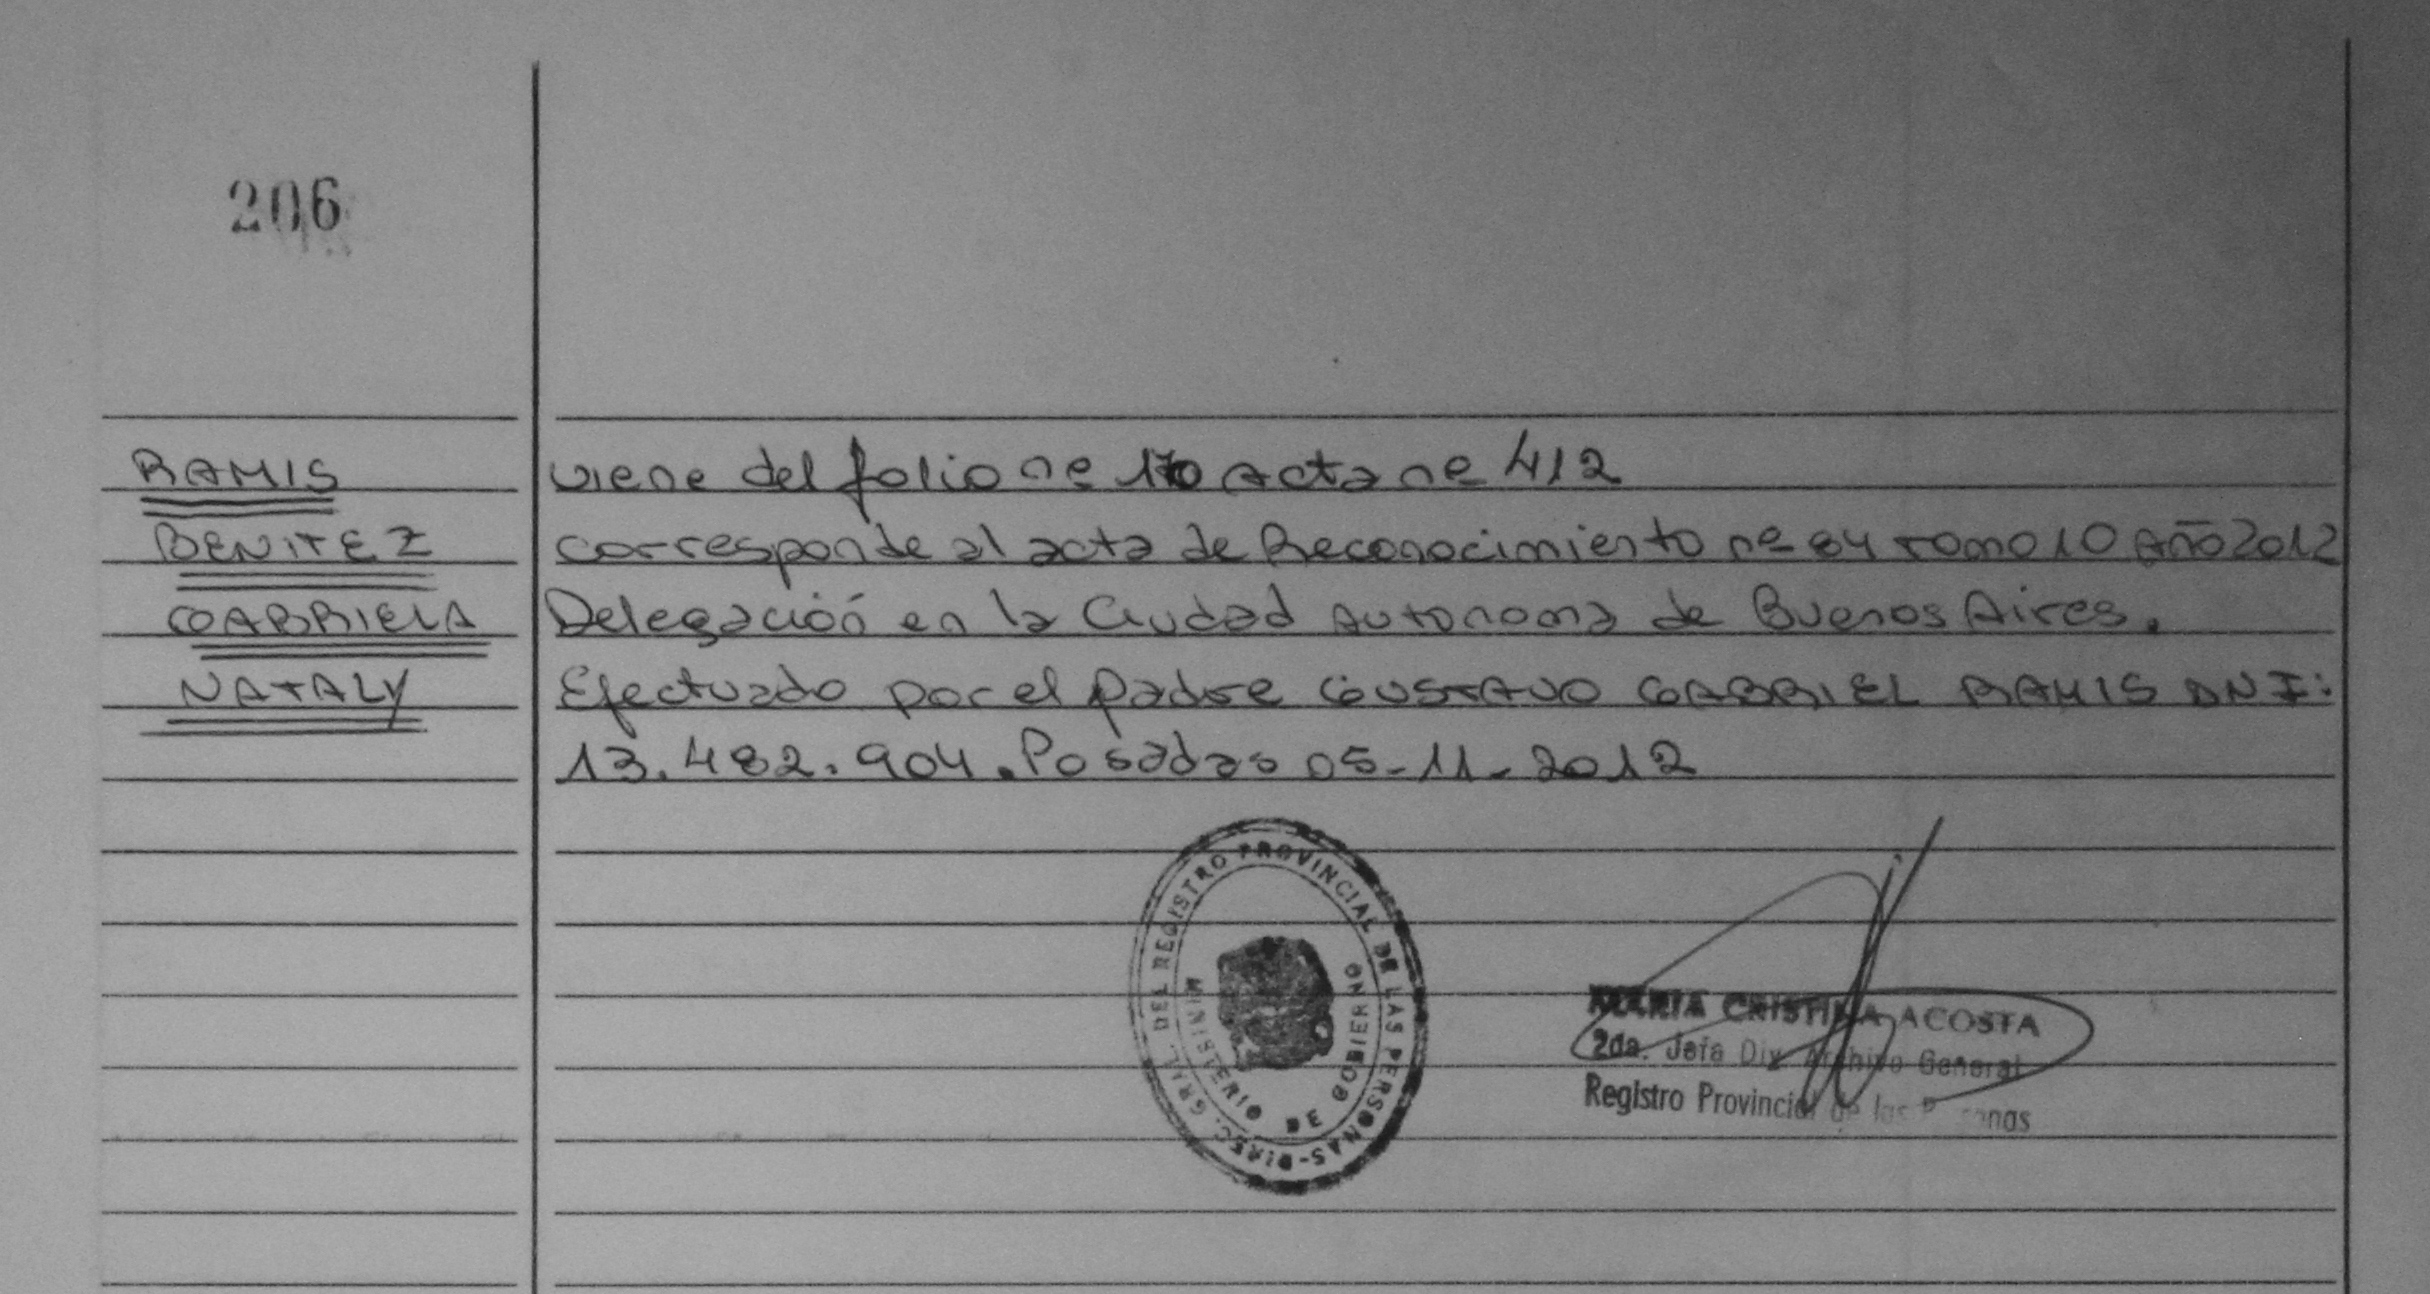 206
RAMIS
BENITEZ
GABRIELA
NATALY
viene del folio nº 170 acta nº 412
corresponde al acta de Reconocimiento nº 84 tomo 10 Año 2012
Delegación en la Ciudad Autonoma de Buenos Aires.
Efectuado por el padre GUSTAVO GABRIEL RAMIS DNI:
13.482.904. Posadas 05-11-2012
DIREC. GRAL. DEL REGISTRO PROVINCIAL DE LAS PERSONAS-
MINISTERIO DE GOBIERNO
MARIA CRISTINA ACOSTA
2da. Jefa Div. Archivo General
Registro Provincial de las Personas